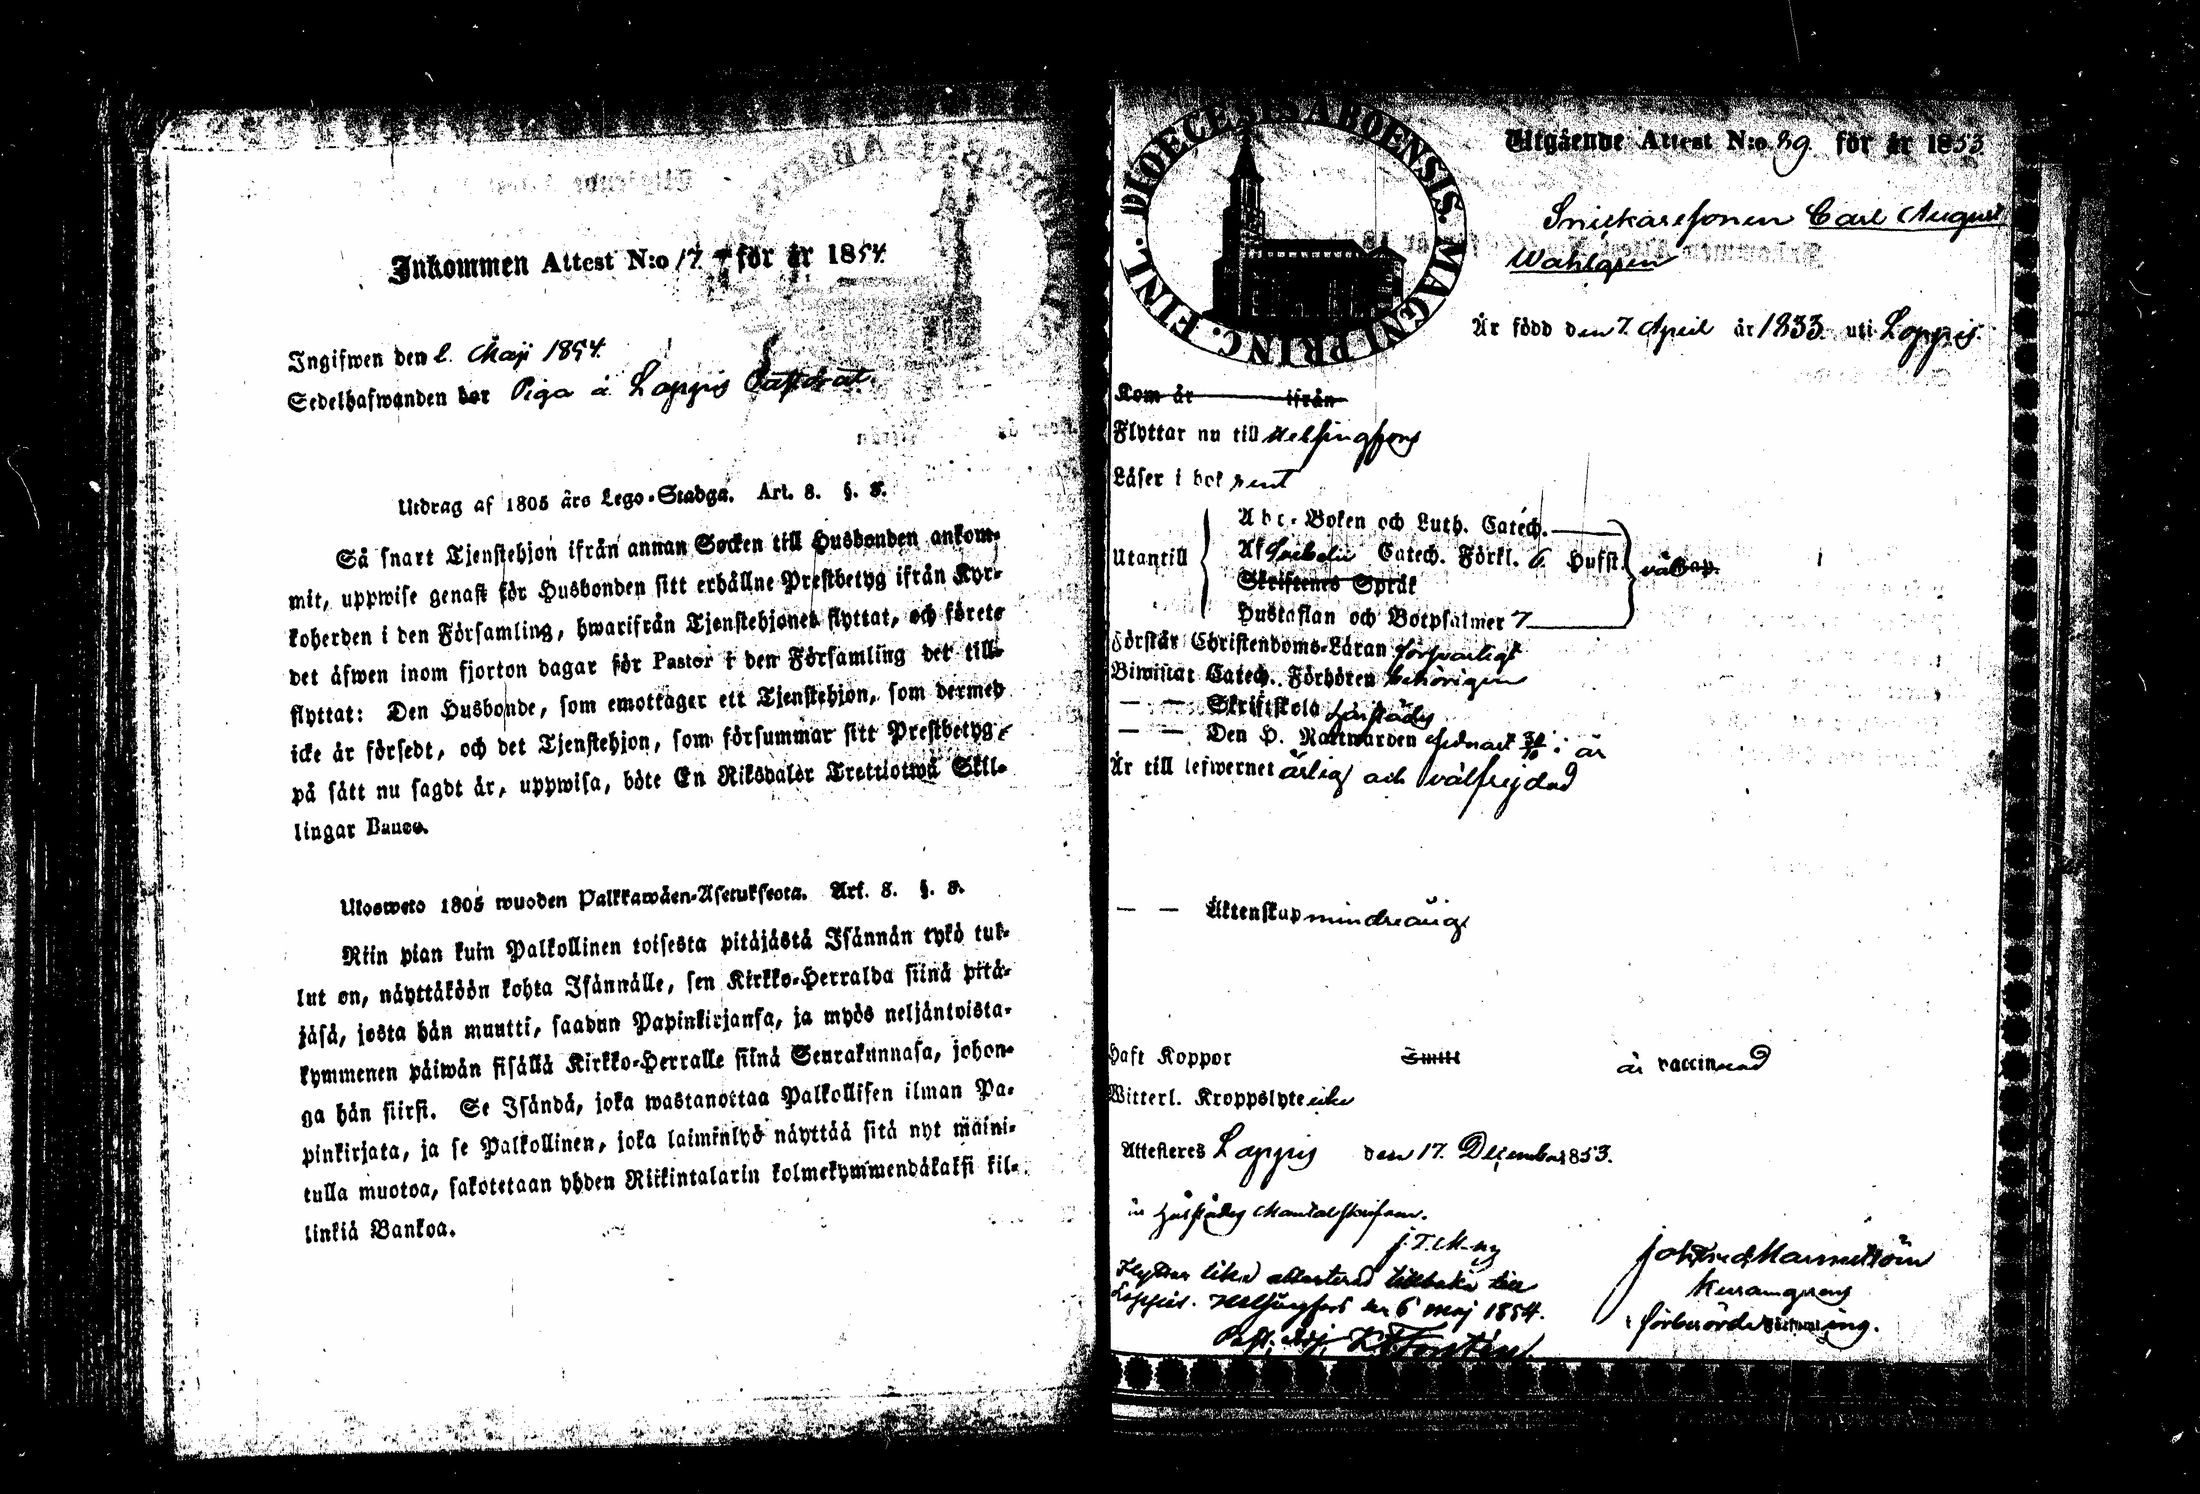 Inkommen Attest N:o 17 för år 1854
Ingifwen den 2. Maji 1854.
Sedelhafwanden bor Piga à Loppis
Utdrag af 1805 års Lego-Stadga. Art. 8. §. 8.
Så snart Tjenstehjon ifrån annan Socken till Husbonden ankom-
mit, uppwise genast för Husbonden sitt erhållne Prestbetyg ifrån Kyr-
koherden i den Församling, hwarifrån Tjenstehjonet flyttat, och förete
det äfwen inom fjorton dagar för Pastor i den Församling det till-
flyttat: Den Husbonde, som emottager ett Tjenstehjon, som dermed
icke är försedt, och det Tjenstehjon, som försummar sitt Prestbetyg,
på sätt nu sagdt är, uppwisa, böte En Riksdaler Trettiotwå Skil-
lingar Banco.
Ulosweto 1805 wuoden Palkkawäen-Asetuksesta. Art. 8. §. 8.
Niin pian kuin Palkollinen toisesta pitäjästä Isännän tykö tul-
lut on, näyttäköön kohta Isännälle, sen Kirkko-Herralda siinä pitä-
jäsä, josta hän muutti, saadun Papinkirjansa, ja myös neljäntoista-
kymmenen päiwän sisällä Kirkko-Herralle siinä Seurakunnasa, johon-
ga hän siirsi. Se Isändä, joka wastanottaa Palkollisen ilman Pa-
pinkirjata, ja se Palkollinen, joka laiminlyö näyttää sitä nyt maini-
tulla muotoa, sakotetaan yhden Riikintalarin kolmekymmendäkaksi kil-
linkiä Bankoa.
DIOECESIS ABOENSIS. MAGNI PRINC. FINL.
Utgående Attest N:o 89. för år 1853
Snickaresonen Carl August
Wahlgren
Är född den 7. April år 1833. uti Loppis.
Kom år ifrån
Flyttar nu till Helsingfors
Läser i bok rent
Utantill
Abc-Boken och Luth. Catech.
Af Svebelii Catech. Förkl. 6 Hufst.
Skriftenes Språk
Hustaflan och Botpsalmer 7
Förstår Christendoms-Läran försvarligt
Biwistat Catech. Förhören behörigen
— — Skriftskola härstädes
— — Den H. Nattwarden sednast 30/10; är
Är till lefwernet ärlig och välfrejdad
— — Äktenskap mindreårig
Haft Koppor Smitt är vaccinerad
Witterl. Kroppslyte icke
Attesteres Loppis den 17. December 1853.
är härstädes Mantalskrifven.
Flyttar lika attesterad tillbaka till
Loppis. Helsingfors den 6 maj 1854.
Past. Adj. K. F. Forstén.